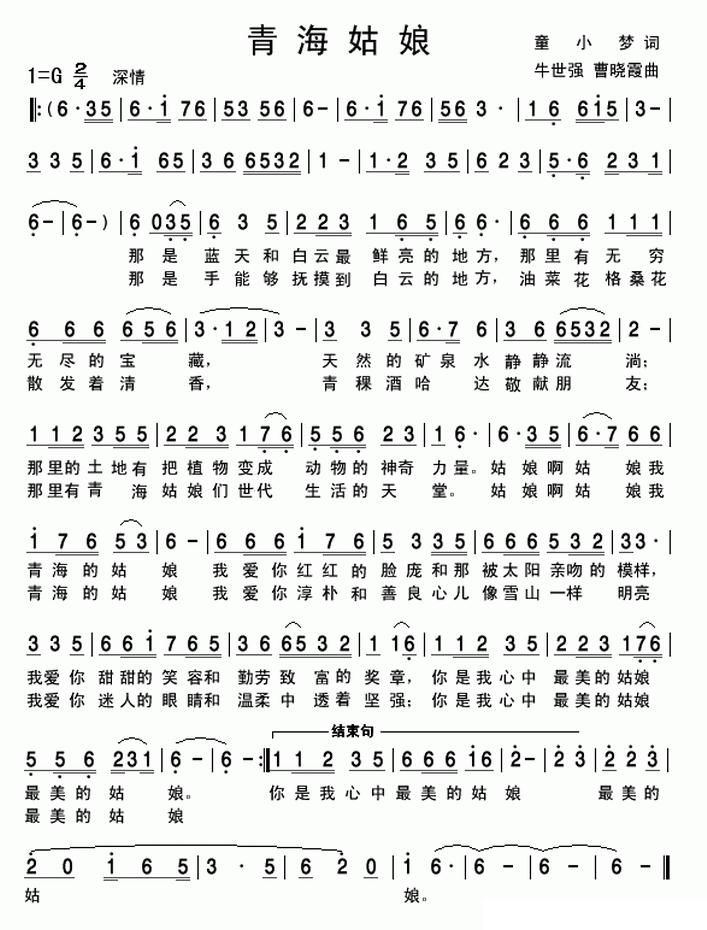 青海姑娘
童小梦词
1=G 2/4 深情
牛世强 曹晓霞曲
‖:(6·35|6·i 76|53 56|6-|6·i 76|535|56 3·|1 6 6i5|3-|
3 3 5|6·i 65|3 6 6532|1 -|1·2 35|6 2 3|5·6 2 3 1|
6-|6-)|6 035|6 3 5|2 2 3 1 6 5|6 6·|6 6 6 1 1 1|
那是蓝天和白云最鲜亮的地方，那里有无穷
那是手能够抚摸到白云的地方，油菜花格桑花
6 6 6 6 5 6|3·1 2|3-|3 3 5|6·7 6|3 6 6532|2 -|
无尽的宝藏， 天然的矿泉水静静流淌；
散发着清香， 青稞酒哈达敬献朋友；
1 1 2 3 5 5|2 2 3 1 7 6|5 5 6 2 3|1 6·|6·3 5|6·7 6 6|
那里的土地有把植物变成动物的神奇力量。姑娘啊姑娘我
那里有青海姑娘们世代生活的天堂。姑娘啊姑娘我
i 7 6 5 3|6 -|6 6 6 i 7 6|5 3 3 5|6 6 6 5 3 2|3 3·|
青海的姑娘我爱你红红的脸庞和那被太阳亲吻的模样，
青海的姑娘我爱你淳朴和善良心儿像雪山一样明亮
3 3 5|6 6 i 7 6 5|3 6 6 5 3 2|1 1 6|1 1 2 3 5|2 2 3 1 7 6|
我爱你甜甜的笑容和勤劳致富的奖章，你是我心中最美的姑娘
我爱你迷人的眼睛和温柔中透着坚强；你是我心中最美的姑娘
结束句
5 5 6 2 3 1|6 -|6 -:‖1 1 2 3 5|6 6 6 i 6|2-|2 3|2 2 3|
最美的姑娘。 你是我心中最美的姑娘 最美的
最美的姑娘
2 0 i 6 5|3·5|6 2 0|i 6·|6 -|6 -|6 -‖
姑 娘。